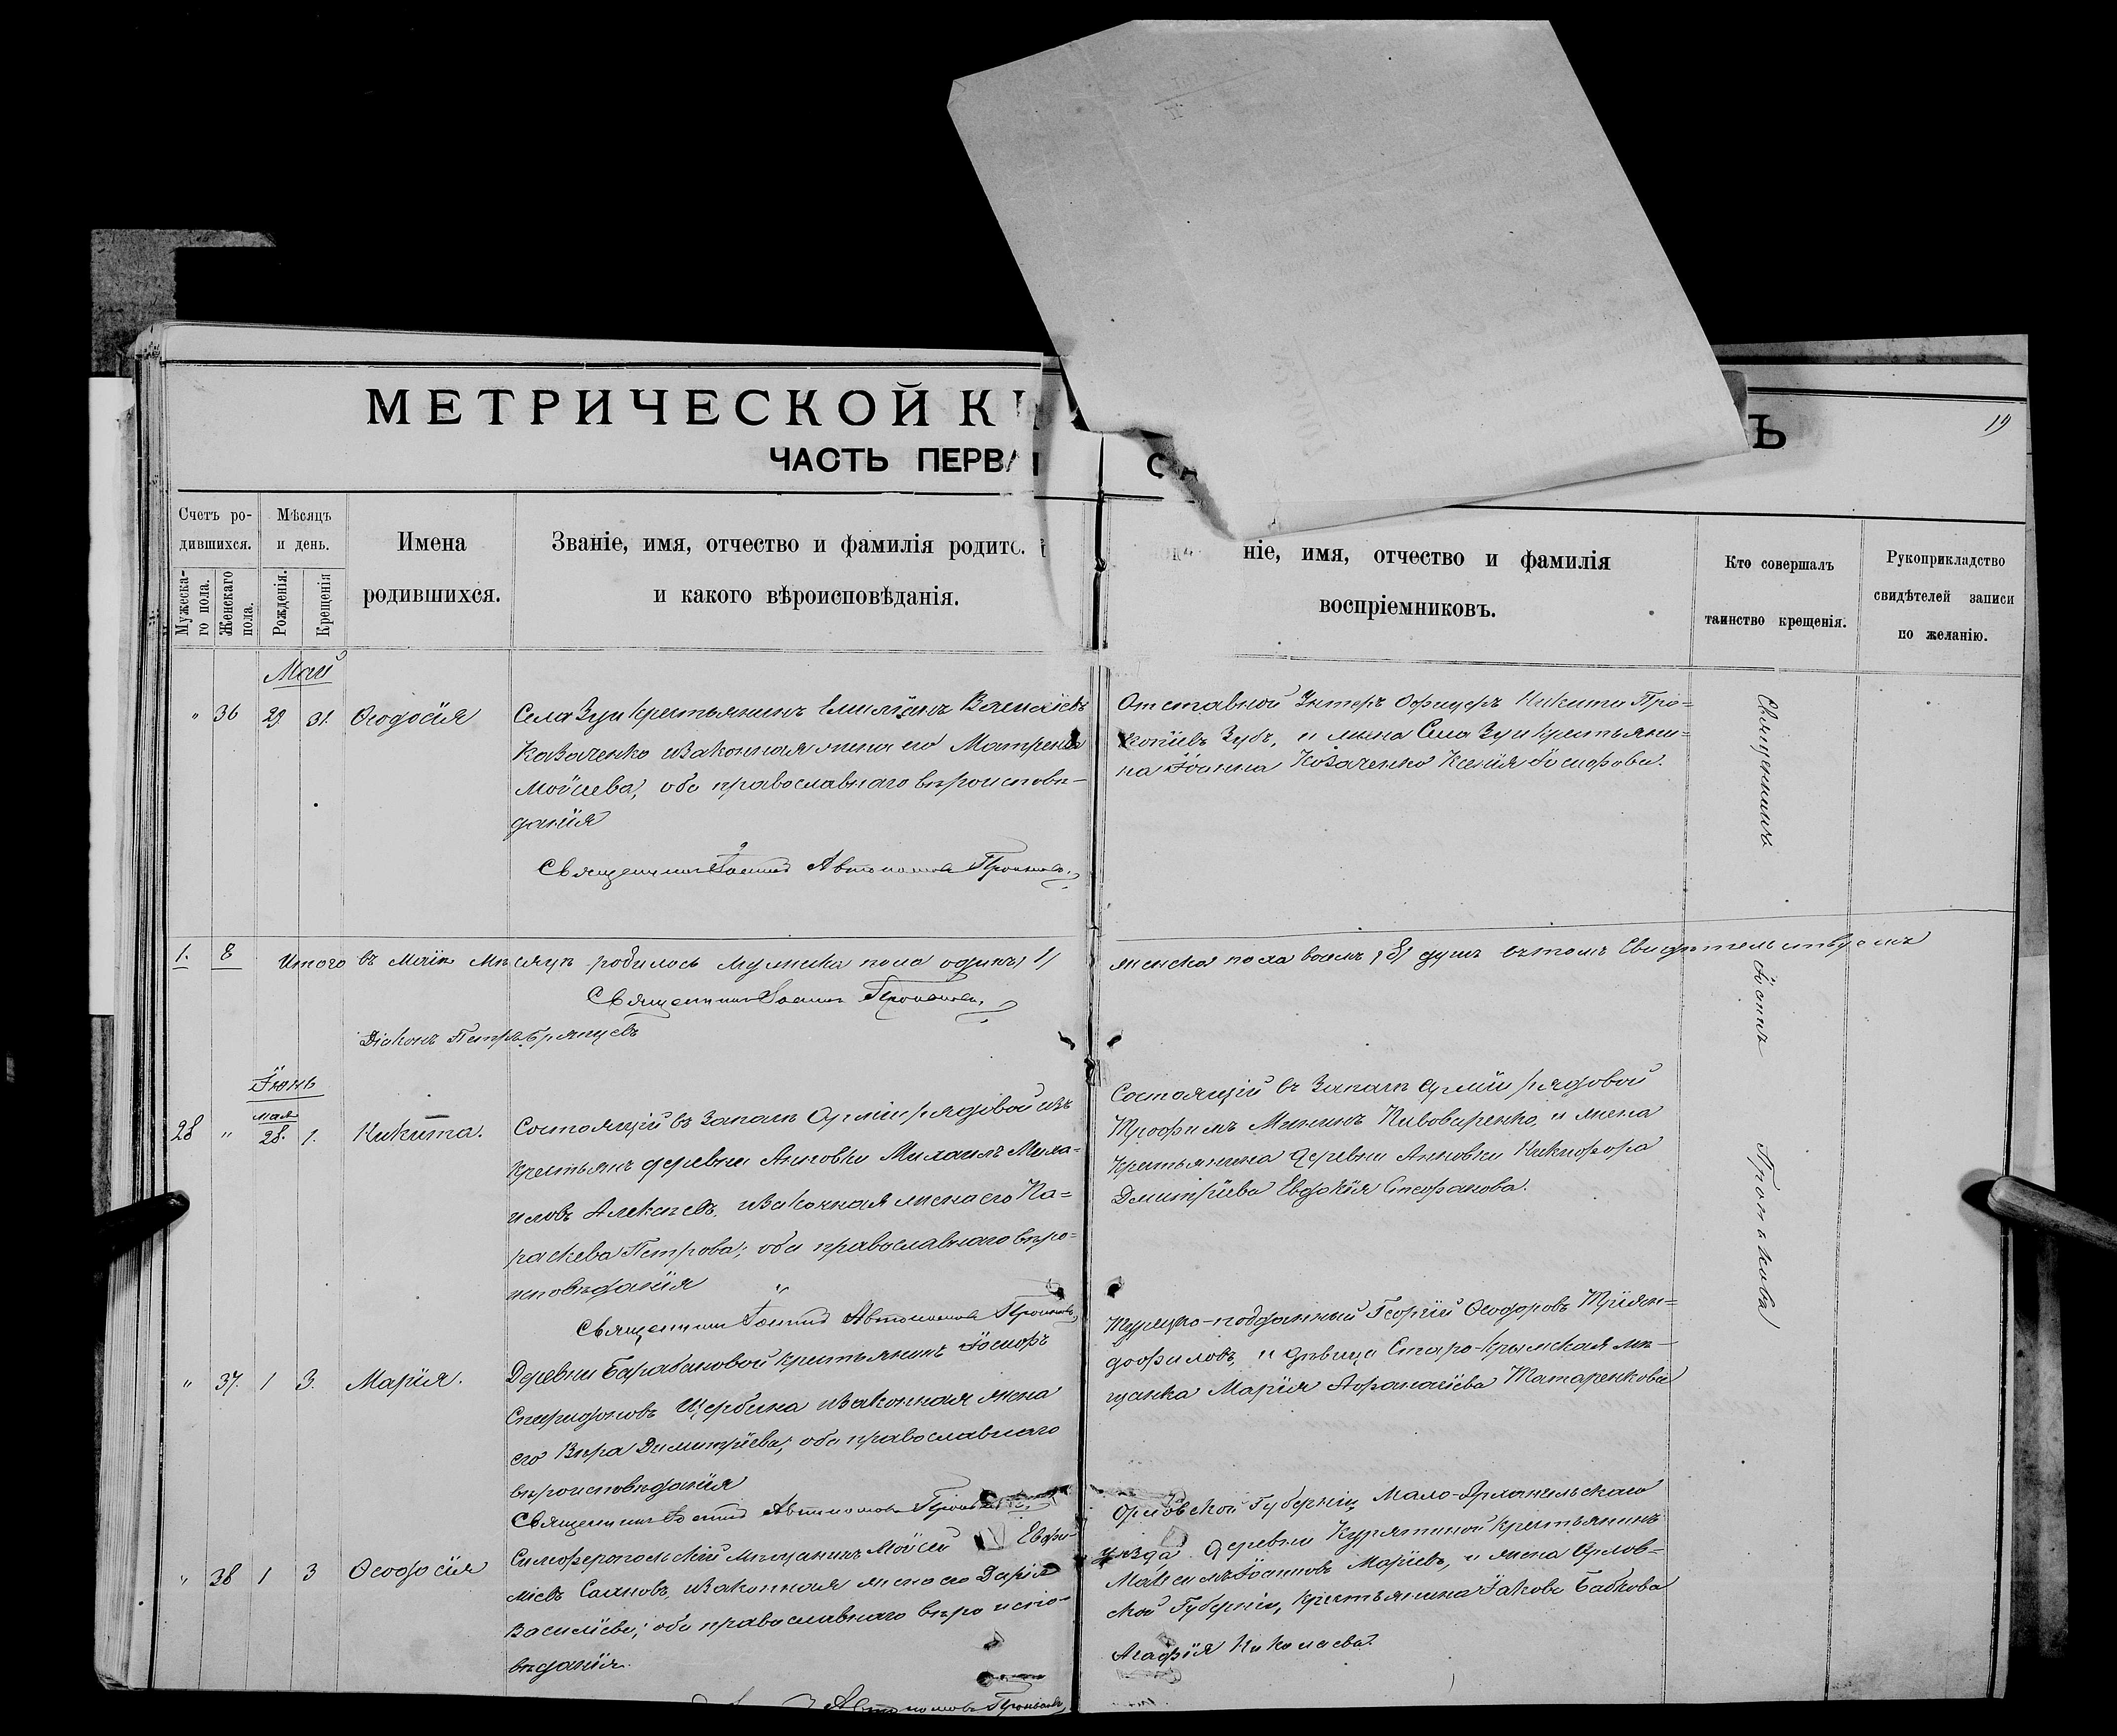 МЕТРИЧЕСКОЙ
19
ЧАСТЬ
Счетъ ро-
дившихся.
Мужеска-
го пола.
Женскаго
пола.
Мѣсяцъ
и день.
Рожденія.
Крещенія
Имена
родившихся.
Званіе, имя, отчество и фамилія
и какого вѣроисповѣданія.
ніе, имя, отчество и фамилія
воспріемниковъ.
Кто совершалъ
таинство крещенія.
Рукоприкладство
свидѣтелей записи
по желанію.
Май
" 36 29 31. Ѳеодосія
Села Зуи крестьянинъ
Коваленко и законная жена его Матрена
Моисѣева, оба православнаго вѣроисповѣ-
данія
Священникъ Іоаннъ Автономовъ
Отставной Унтеръ Офицеръ Никита Про=
копіевъ Зубъ, и жена Села Зуи крестьяни=
на Іоанна Коваленко Ксенія Іосифова.
1. 8 Итого въ Маѣ мѣсяцѣ родилось мужска пола одинъ, 1,
женска пола восемь, 8, душъ въ томъ свидѣтельствуемъ
Священникъ Іоаннъ
Діаконъ Петръ Брянцевъ
Іюнь
мая
28 " 28. 1. Никита.
Состоящій въ Запасѣ Арміи рядовой изъ
крестьянъ деревни Анновки Михаилъ Миха=
иловъ Алексѣевъ, и законная жена его Па=
раскева Петрова; оба православнаго вѣро=
исповѣданія
Священникъ Іоаннъ Автономовъ
Состоящій въ Запасѣ Арміи рядовой
Трофимъ Мининъ Пивоваренко, и жена
крестьянина деревни Анновки Никифора
Дмитріева Евдокія Стефанова.
" 37. 1 3. Марія.
Деревни Барабановой крестьянинъ Іосифъ
Спиридоновъ Щербина и законная жена
его Вѣра Димитріева; оба православнаго
вѣроисповѣданія
Священникъ Іоаннъ Автономовъ
Турецко-подданный Георгій Ѳеодоровъ Тріян=
дофиловъ, и дѣвица Старо-Крымская мѣ-
щанка Марія Аѳанасіева Татаренкова
" 38 1 3 Ѳеодосія
Симферопольскій мѣщанинъ Моисей Евфи-
міевъ и законная жена его Дарія
Василіева; оба православнаго вѣроиспо-
вѣданія.
Автономовъ
Орловской Губерніи, Мало-Архангельскаго
уѣзда деревни Курятиной крестьянинъ
Максимъ Іоанновъ и жена Орлов=
ской Губерніи, крестьянина Іакова Бабкова
Агафія Николаева.
Священникъ
Іоаннъ